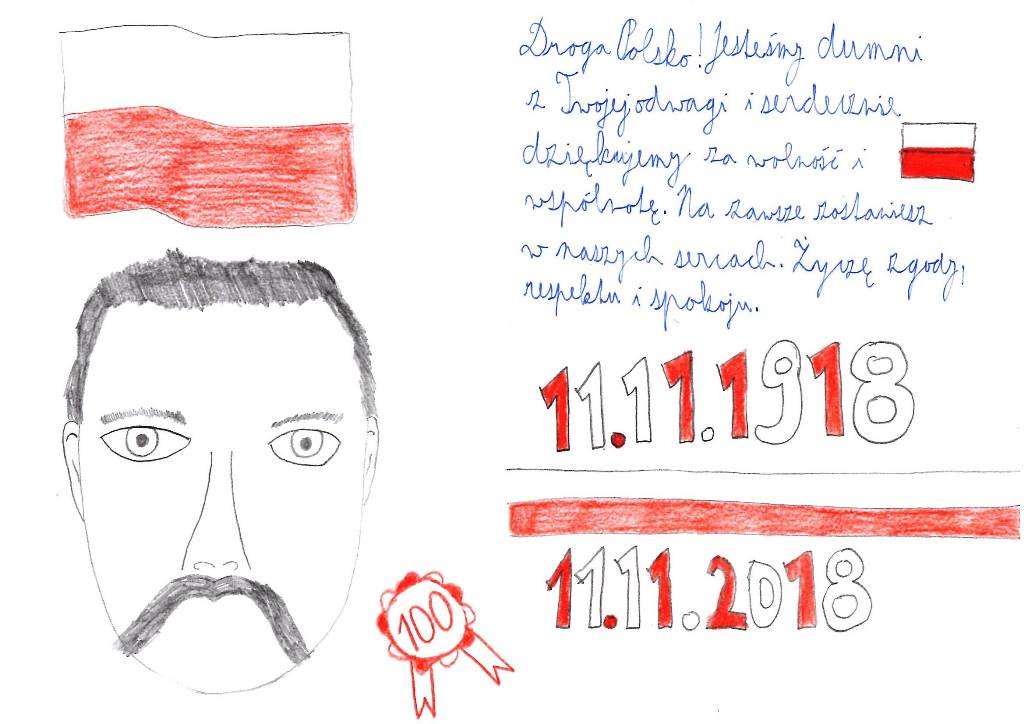 Droga Polsko! Jesteśmy dumni
z Twojej odwagi i serdecznie
dziękujemy za wolność i
wspólnotę. Na zawsze zostaniesz
w naszych sercach. Życzę zgody,
respektu i spokoju.
11.11.1918
11.11.2018
100